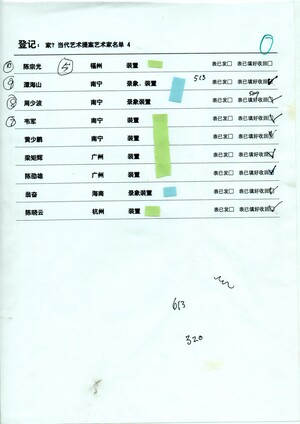 登记： 家？当代艺术提案艺术家名单 4
陈宗光 5 福州 装置 表已发□ 表已填好收回□
潭海山 南宁 录象、装置 513 表已发□ 表已填好收回□✓
周少波 南宁 录象装置 表已发□ 表已填好收回□✓
韦军 南宁 装置 表已发□ 表已填好收回□✓
黄少鹏 南宁 装置 表已发□ 表已填好收回□✓
梁矩辉 广州 装置 表已发□ 表已填好收回□✓
陈劭雄 广州 装置 表已发□ 表已填好收回□✓
翁奋 海南 录象装置 表已发□ 表已填好收回□✓
陈晓云 杭州 装置 表已发□ 表已填好收回□✓
613
320